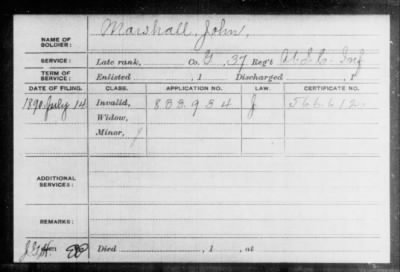 NAME OF SOLDIER: Marshall, John,
SERVICE: Late rank, Co. G, 37 Reg't U.S.C. Inf
TERM OF SERVICE: Enlisted , 1 Discharged , 1
DATE OF FILING. CLASS. APPLICATION NO. LAW. CERTIFICATE NO.
1890 July 14 Invalid, 833.934 J 566.612.
Widow,
Minor,
ADDITIONAL SERVICES:
REMARKS:
Died , 1 , at